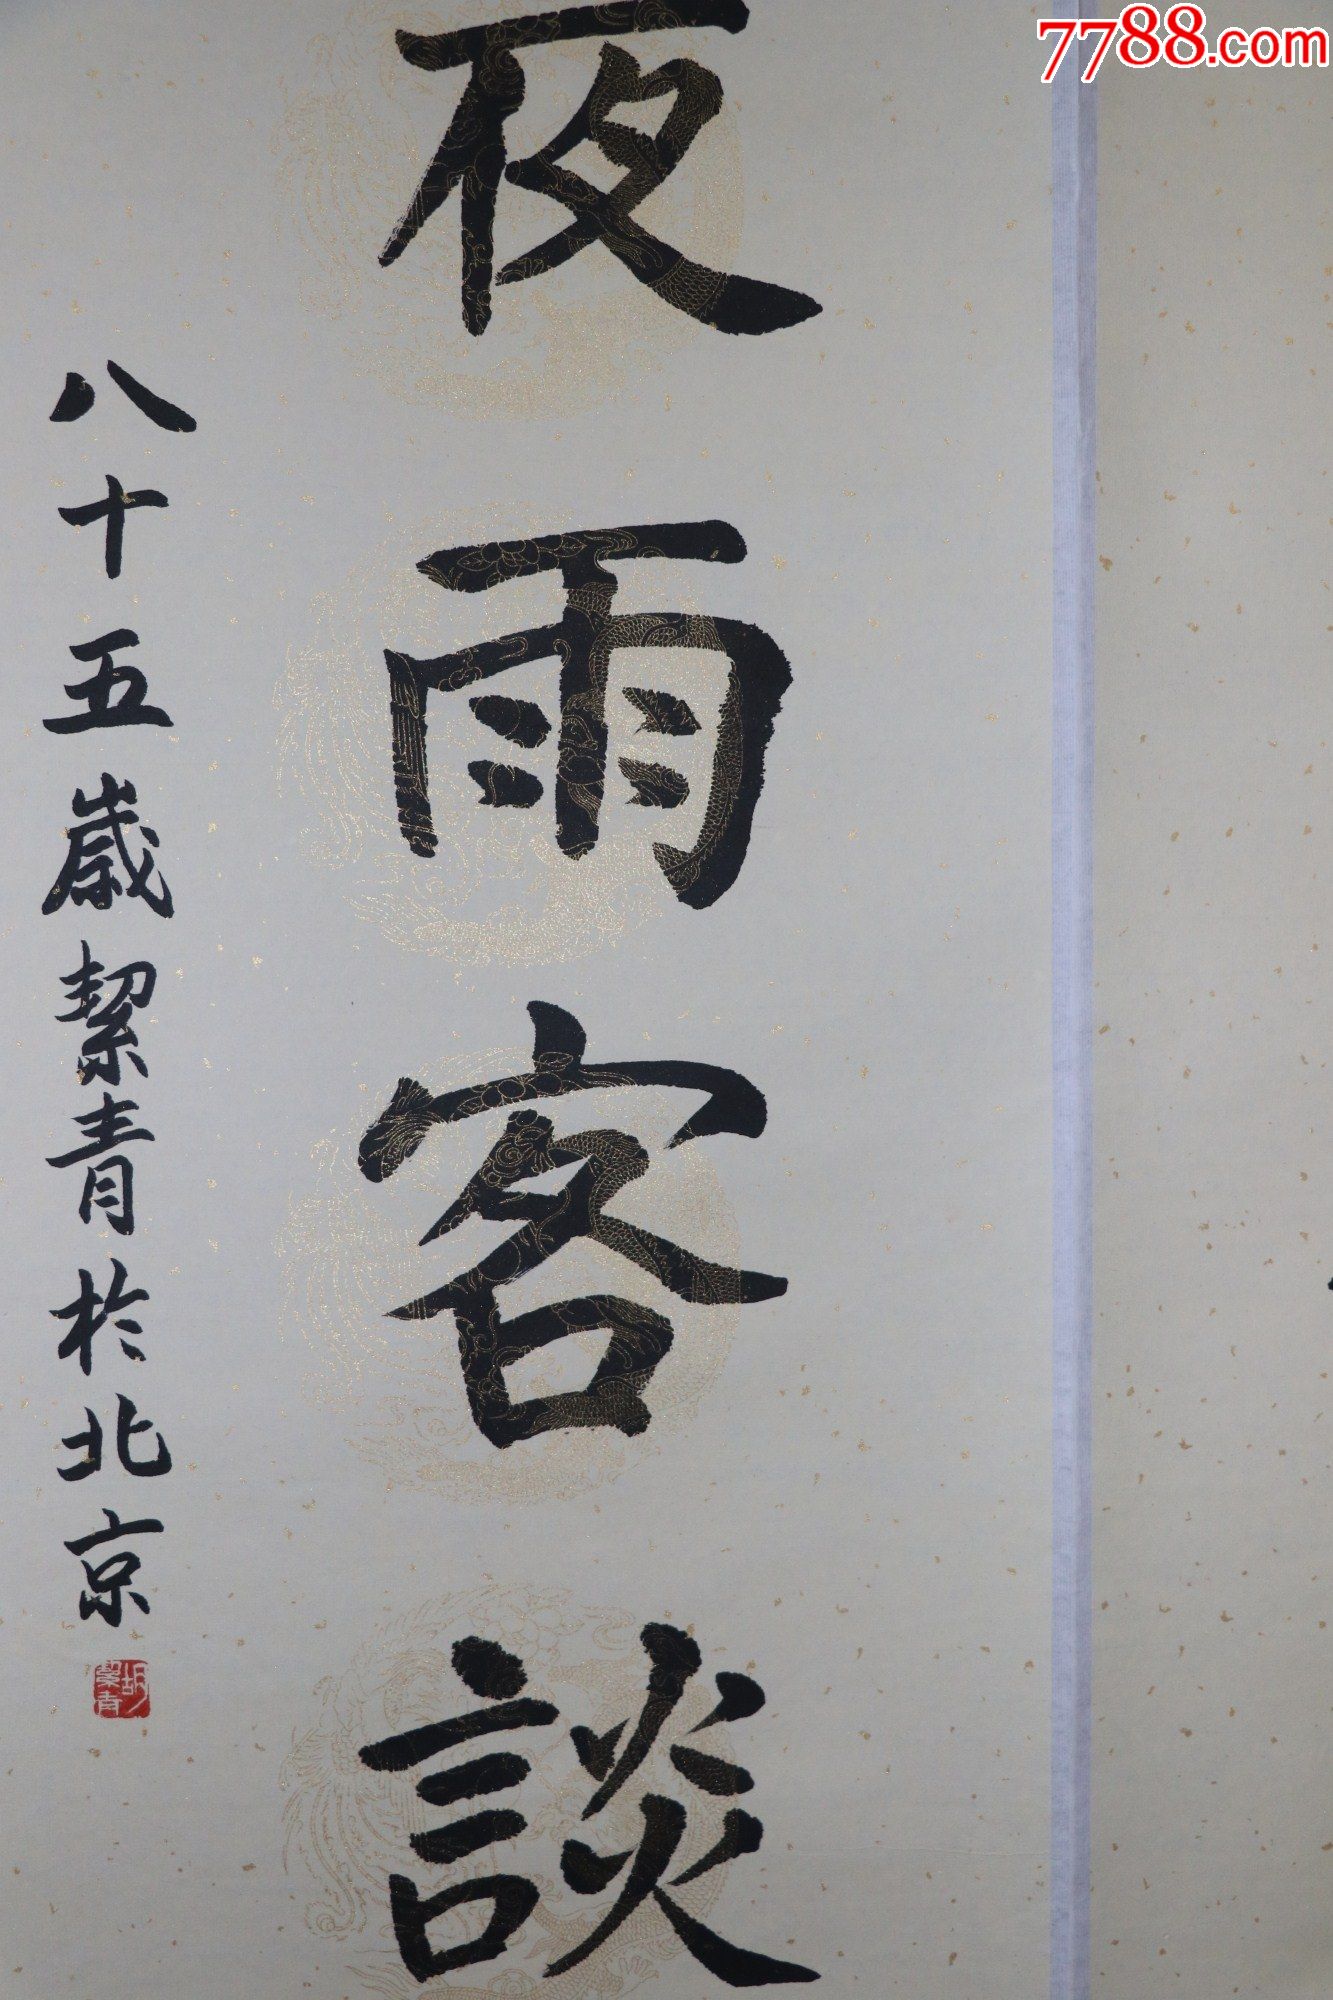 7788.com
夜雨客談
八十五歲絜青於北京
胡絜青